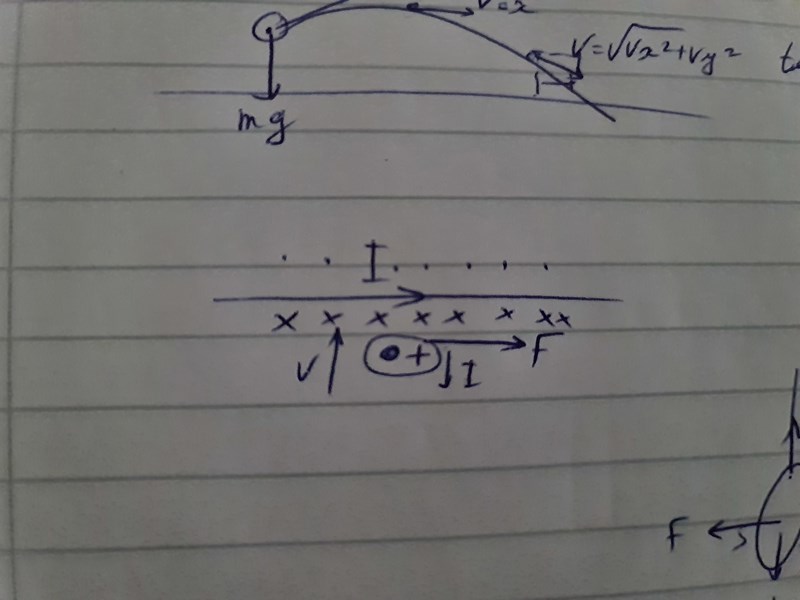 V=x
V=√Vx²+Vy²
mg
. . I . . . . .
x x x x x x xx
V + I F
F